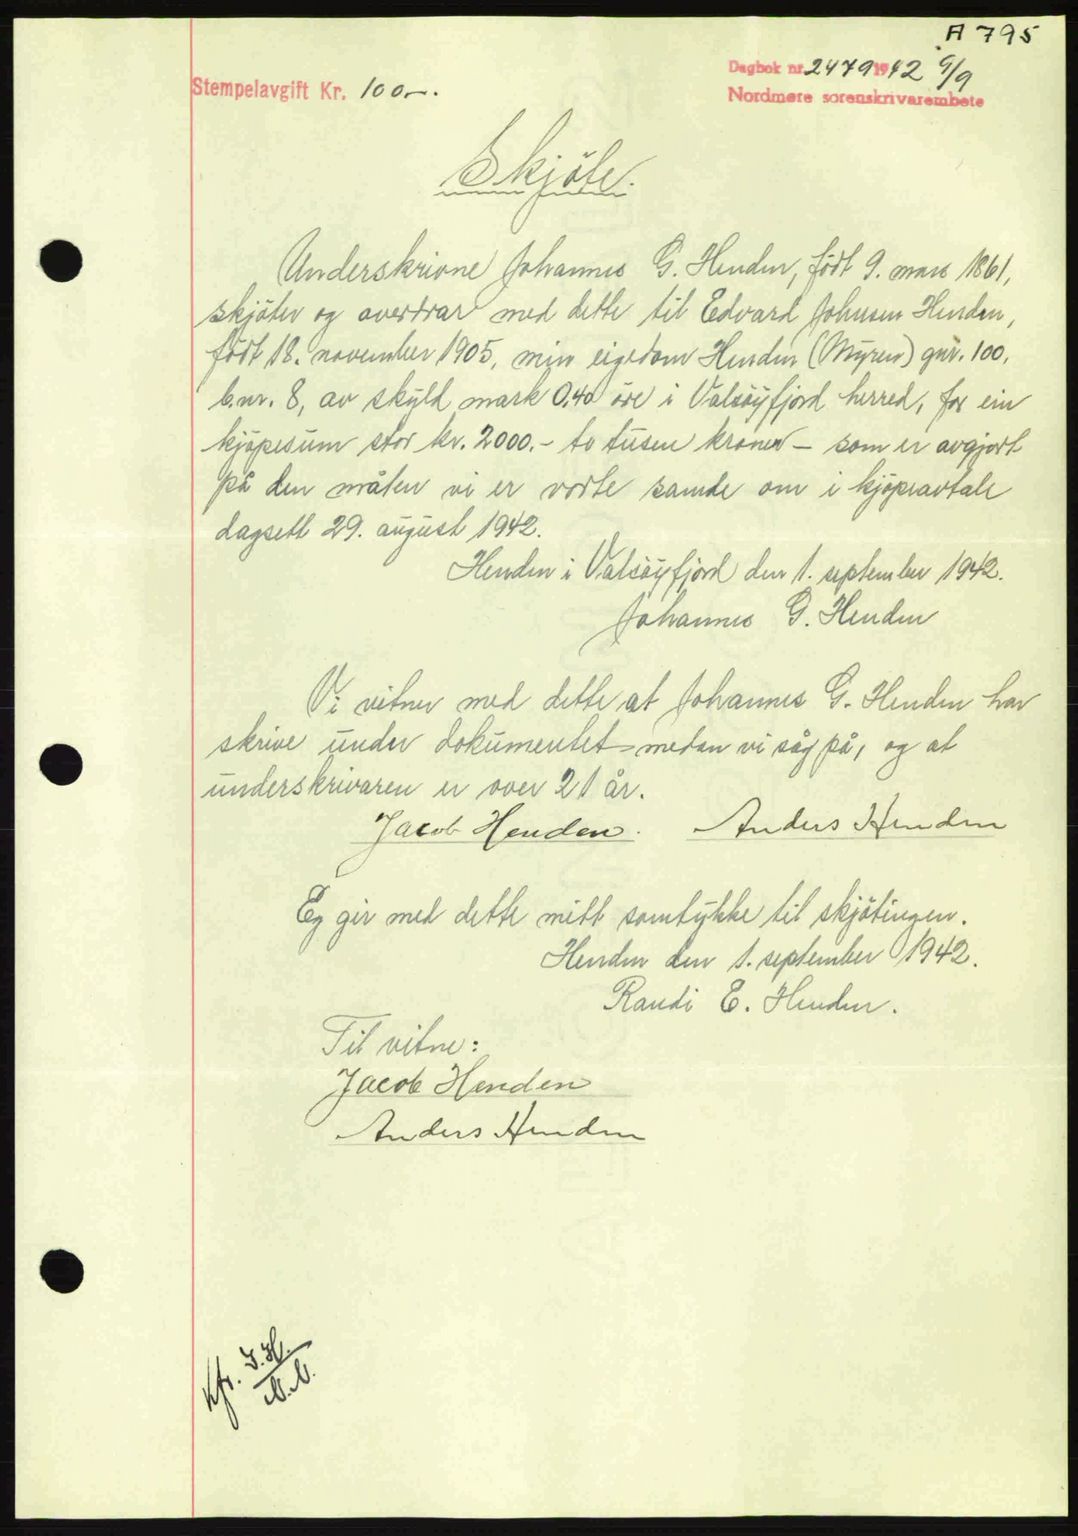 A 795
Stempelavgift Kr. 100.-.
Dagbok nr. 2479 1942 9/9
Nordmøre sorenskrivarembete
Skjöte.
Underskrivne Johannes G. Henden, födt 9. mars 1861,
skjöter og overdrar med dette til Edvard Johnsen Henden,
födt 18. november 1905, min eigedom Henden (Myren) gnr. 100,
b.nr. 8, av skyld mark 0.40 öre i Valsöyfjord herred, for ein
kjöpesum stor kr. 2000.- to tusen kroner - som er avgjort
på den måten vi er vorte samde om i kjöpeavtale
dagsett 29. august 1942.
Henden i Valsöyfjord den 1. september 1942.
Johannes G. Henden
Vi vitner med dette at Johannes G. Henden har
skrive under dokumentet medan vi såg på, og at
underskrivaren er over 21 år.
Jacob Henden. Anders Henden
Eg gir med dette mitt samtykke til skjötingen.
Henden den 1. september 1942.
Randi E. Henden.
Til vitne:
Jacob Henden
Anders Henden
Kfr. I.H.